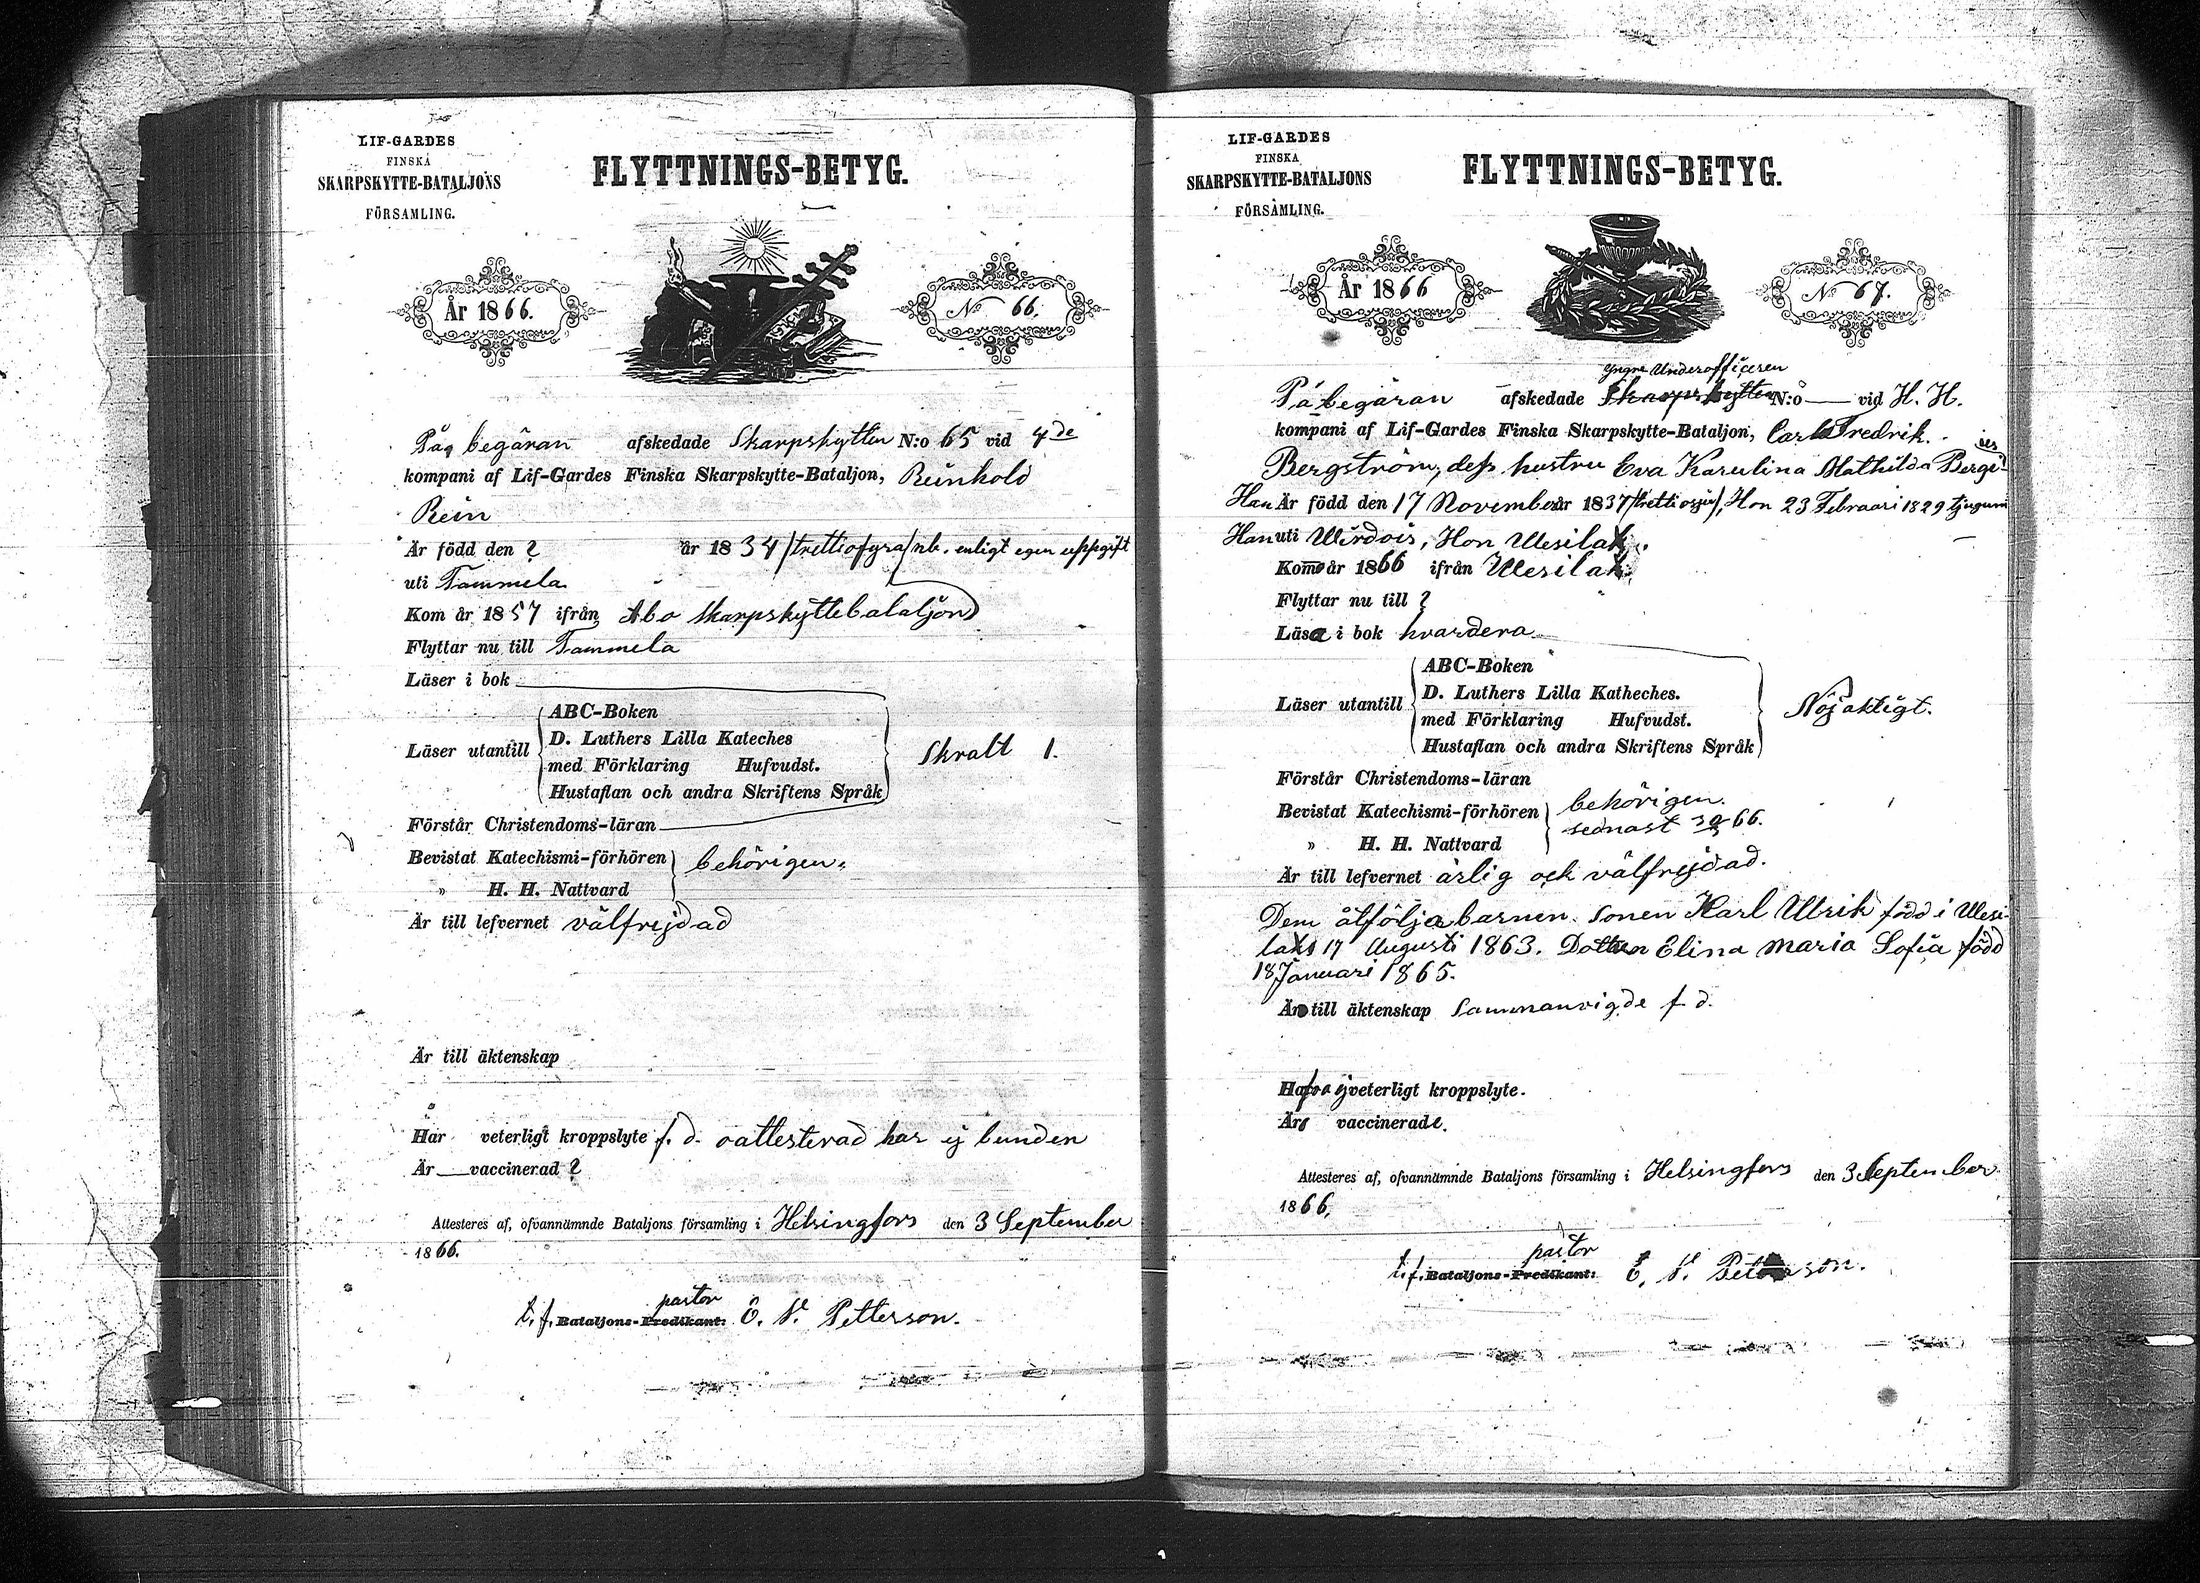 LIF-GARDES
FINSKA
SKARPSKYTTE-BATALJONS
FÖRSAMLING.
FLYTTNINGS-BETYG.
År 1866.
No 66.
På begäran afskedade Skarpskytten N:o 65 vid 4de
kompani af Lif-Gardes Finska Skarpskytte-Bataljon, Reinhold
Rein
Är född den ? år 1834 /trettiofyra/ nb. enligt egen uppgift
uti Tammela
Kom år 1857 ifrån Åbo Skarpskyttebataljon
Flyttar nu till Tammela
Läser i bok
Läser utantill
ABC-Boken
D. Luthers Lilla Kateches
med Förklaring Hufvudst.
Hustaflan och andra Skriftens Språk
Skralt 1.
Förstår Christendoms-läran
Bevistat Katechismi-förhören
" H. H. Nattvard
behörigen.
Är till lefvernet välfrejdad
Är till äktenskap
Har veterligt kroppslyte f. d. oattesterad har ej bunden
Är vaccinerad ?
Attesteres af, ofvannämnde Bataljons församling i Helsingfors den 3 September
1866.
pastor
t. f. Bataljons-Predikant: E. V. Petterson.
LIF-GARDES
FINSKA
SKARPSKYTTE-BATALJONS
FÖRSAMLING.
FLYTTNINGS-BETYG.
År 1866
No 67.
yngre Underofficeren
På begäran afskedade Skarpskytten N:o — vid H. H.
kompani af Lif-Gardes Finska Skarpskytte-Bataljon, Carl Fredrik
Bergström, dess hustru Eva Karolina Mathilda
Han Är född den 17 November år 1837 /trettiosju/, Hon 23 Februari 1829
Han uti Wirdois, Hon Wesilaks.
Komo år 1866 ifrån Wesilaks.
Flyttar nu till ?
Läsa i bok hvardera
Läser utantill
ABC-Boken
D. Luthers Lilla Katheches.
med Förklaring Hufvudst.
Hustaflan och andra Skriftens Språk
Nöjaktigt.
Förstår Christendoms-läran
Bevistat Katechismi-förhören
" H. H. Nattvard
behörigen.
sednast 66.
Är till lefvernet ärlig och välfrejdad.
Dem åtfölja barnen. Sonen Karl Ulrik född i Wesi-
laks 17 Augusti 1863. Dottren Elina Maria Sofia född
18 Januari 1865.
Äro till äktenskap Sammanvigde f. d.
Hafva ej veterligt kroppslyte.
Äro vaccinerade.
Attesteres af, ofvannämnde Bataljons församling i Helsingfors den 3 September
1866,
pastor
t. f. Bataljons-Predikant: E. V. Petterson.